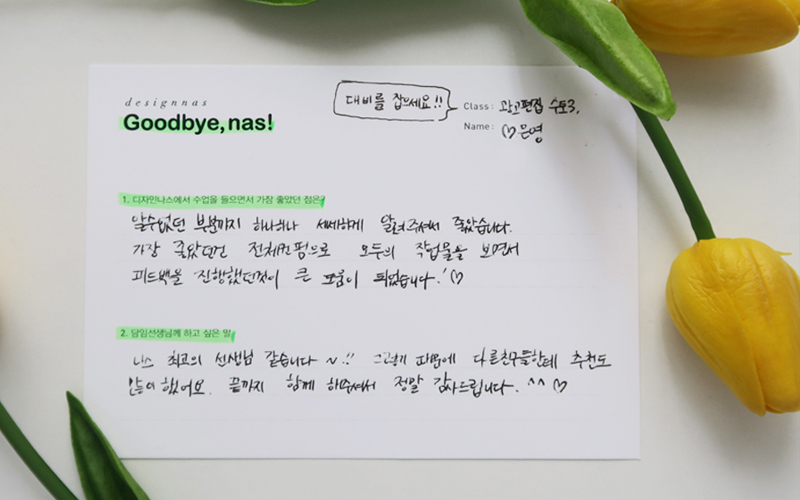 designnas
Goodbye, nas!
대비를 잡으세요!!
Class : 광고편집 수토3.
Name : ♡은영
1. 디자인나스에서 수업을 들으면서 가장 좋았던 점은?
알수없던 부분까지 하나하나 세세하게 알려주셔서 좋았습니다.
가장 좋았던건 전체컨펌으로 모두의 작업물을 보면서
피드백을 진행했던것이 큰 도움이 되었습니다.! ♡
2. 담임선생님께 하고 싶은 말
나스 최고의 선생님 같습니다 ~!! 그렇기 때문에 다른친구들한테 추천도
많이 했어요. 끝까지 함께 해주셔서 정말 감사드립니다. ^^ ♡